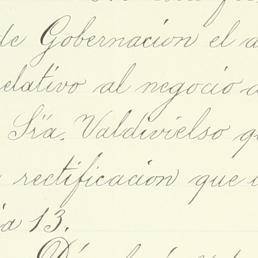 de Gobernacion el
relativo al negocio
Sra. Valdivielso
rectificacion que
13.